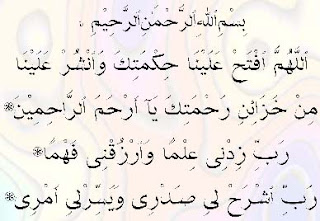 بِسْمِ اللهِ الرَّحْمٰنِ الرَّحِيْمِ ۰
اَللّٰهُمَّ افْتَحْ عَلَيْنَا حِكْمَتَكَ وَانْشُرْ عَلَيْنَا
مِنْ خَزَائِنِ رَحْمَتِكَ يَآ اَرْحَمَ الرَّاحِمِيْنَ*
رَبِّ زِدْنِى عِلْمًا وَارْزُقْنِى فَهْمًا*
رَبِّ اشْرَحْ لِى صَدْرِى وَيَسِّرْلِى اَمْرِى*